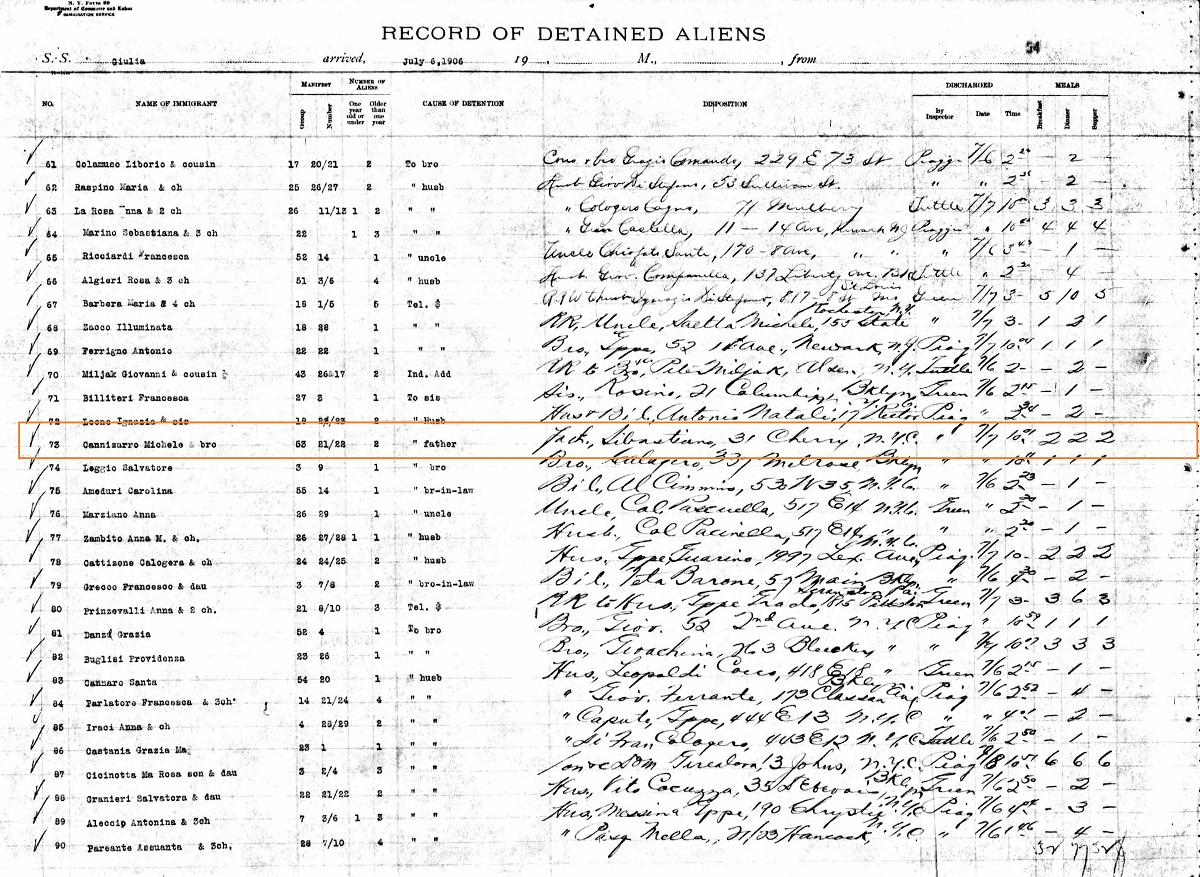 N. Y. Form 99
Department of Commerce and Labor
IMMIGRATION SERVICE
RECORD OF DETAINED ALIENS
54
S. S. Giulia arrived, July 6, 1906 19 , M., from
MANIFEST NUMBER OF ALIENS DISCHARGED MEALS
NO. NAME OF IMMIGRANT Group Number One year old or under Older than one year CAUSE OF DETENTION DISPOSITION by Inspector Date Time Breakfast Dinner Supper
61 Colamuso Liborio & cousin 17 20/21 2 To bro 229 E 73 St 7/6 – 2 –
62 Raspino Maria & ch 25 26/27 2 " husb Husb Giov Di Stefano, 53 Sullivan St. " " – 2 –
63 La Rosa nna & 2 ch 26 11/13 1 2 " " " Cologero Cagno, 71 Mulberry Tuttle 7/7 3 3 3
64 Marino Sebastiana & 3 ch 22 1 3 " " " Castella, 11 – 14 Ave, Newark NJ " 4 4 4
65 Ricciardi Francesca 52 14 1 " uncle Uncle Sante, 170 - 8 Ave, " " – 1 –
66 Algieri Rosa & 3 ch 51 3/6 4 " husb Husb. Giov. Companella, 137 Liberty Ave. Tuttle " – 4 –
67 Barbera Maria & 4 ch 18 1/5 5 Tel. $ Di Stefano, 817 - 8 St St Louis Mo Green 7/7 3- 5 10 5
68 Zacco Illuminata 18 28 1 " " RR, Uncle, Saetta Michele, 155 State Rochester N.Y. " 7/7 3- 1 2 1
69 Ferrigno Antonio 22 22 1 " " Bro, Gppe, 52 Ave., Newark, N.J. Piag 7/7 1 1 1
70 Miljak Giovanni & cousin 43 26&17 2 Ind. Add RR to Bro, Pete Miljak, N.Y. Tuttle 7/6 2- – 2 –
71 Billiteri Francesca 27 3 1 To sis Sis, Rosina, 21 Columbia, Bklyn Green 7/6 – 1 –
72 Leone Ignazio & sis 18 22/23 2 " Husb Hus & Bil, Antonio Natali, 17 Rector Piag " – 2 –
73 Cannizurro Michele & bro 53 21/22 2 " father Fath, Sibastiano, 31 Cherry, N.Y.C. " 7/7 2 2 2
74 Leggio Salvatore 3 9 1 " bro Bro, Calagero, 337 Melrose Bklyn " " 1 1 1
75 Ameduri Carolina 55 14 1 " br-in-law Bil, Al Cimmino, 530 W 35 N.Y.C. " 7/6 – 1 –
76 Marziano Anna 26 29 1 " uncle Uncle, Cal Pascinella, 517 E 14 N.Y.C. Green " – 1 –
77 Zambito Anna M. & ch. 26 27/28 1 1 " husb Husb, Cal Pacinella, 517 E 14 " " " – 1 –
78 Cattizone Calogera & ch 24 24/25 2 " husb Hus, Gppe Guarino, 1997 Lex. Ave, N.Y.C. Piag 7/7 10- 2 2 2
79 Grecco Francesco & dau 3 7/8 2 " bro-in-law Bil, Barone, 57 Main Bklyn " 7/6 – 2 –
80 Prinzevalli Anna & 2 ch. 21 8/10 3 Tel. $ RR to Hus, Gppe Prado, 815 Pittston Scranton Pa. Green 7/7 3- 3 6 3
81 Danzi Grazia 52 4 1 To bro Bro, Giov. 52 2nd Ave. N.Y.C Piag " 1 1 1
82 Buglisi Providenza 23 26 1 " Bro, Gioachina, 263 Bleecker " " 7/7 3 3 3
83 Cannaro Santa 54 20 1 " husb Hus, Leopoldi Cocco, 418 E Green 7/6 – 1 –
84 Parlatore Francesca & 3ch 14 21/24 4 " " " Giov. Ferrante, 173 Classon Ave Bkly Piag 7/6 – 4 –
85 Iraci Anna & ch 4 28/29 2 " " " Caputo, Gppe, 444 E 13 N.Y.C " " – 2 –
86 Castania Grazia Ma 23 1 1 " " " Di Fran Calogero, 443 E 12 N.Y.C Tuttle 7/6 – 1 –
87 Cicinotta Ma Rosa son & dau 3 2/4 3 " " 3 Johns, N.Y.C. Piag 7/8 6 6 6
88 Granieri Salvatora & dau 22 21/22 2 " " Hus, Vito Cocuzza, 35 Bkly Green 7/6 – 2 –
89 Aleccip Antonina & 3ch 7 3/6 1 3 " " Hus, Messina Gppe, 190 Chrystie N.Y.C Piag 7/6 – 3 –
90 Pareante Assuanta & 3ch. 28 7/10 4 " " " Pasq Mella, 21/23 Hancock, N.Y.C " 7/6 – 4 –
32 77 32